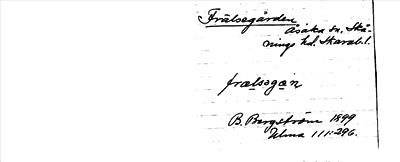 Frälsegården
Åsaka sn, Skå-
nings hd. Skarab.l.
frạlsəgạ̊n
B. Bergström 1899
Ulma 111:296.